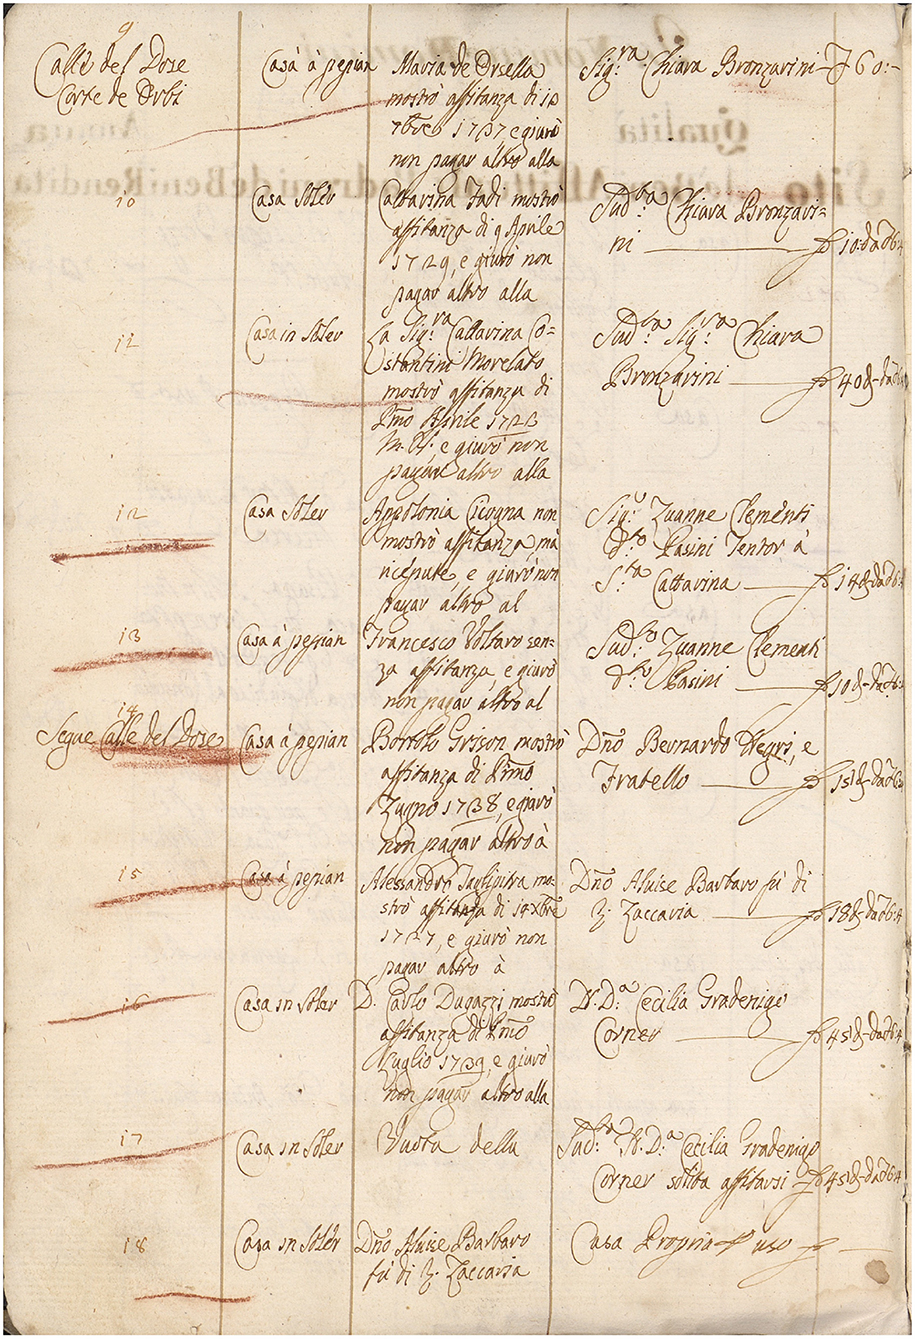 9
Calle del Dose
Corte de Orbi
Casa à pepian
Maria de Orsella
mostrò affitanza di 10
7bre 1737 e giurò
non pagar altro alla
Sig.ra Chiara Bronzarini
60:-
10
Casa Soler
Cattarina Fadi mostrò
affitanza di 9 Aprile
1729, e giurò non
pagar altro alla
Sud.ta Chiara Bronzari=
ni
10 da 6:4
11
Casa in Soler
La Sig.ra Cattarina Co=
stantini Morelato
mostrò affitanza di
Pmo Aprile 1723
M.V., e giurò non
pagar altro alla
Sud.ta Sig.ra Chiara
Bronzarini
40 d- da
12
Casa Soler
Appolonia Cicogna non
mostrò affitanza mà
ricepute, e giurò non
pagar altro al
Sig.r Zuanne Clementi
d.to Pasini Tentor à
S.ta Cattarina
14 d- da 6:4
13
Casa à pepian
Francesco Voltaro sen=
za affitanza, e giurò
non pagar altro al
Sud.to Zuanne Clementi
d.to Pasini
10 d- da 6:
14
Segue Calle del Dose
Casa à pepian
Bortolo Grison mostrò
affitanza di Pmo
Zugno 1738, e giurò
non pagar altro à
Dño Bernardo Negri, e
Fratello
15 d- da
15
Casa à pepian
Alessandro Taglipitra mo=
strò affitanza di 14 Xbre
1727, e giurò non
pagar altro à
Dño Aluise Barbaro fù di
Z. Zaccaria
18 d- da 6:4
16
Casa in Soler
D. Carlo Dagazzi mostrò
affitanza di Pmo
Luglio 1739, e giurò
non pagar altro alla
N.D.a Cecilia Gradenigo
Corner
45 d- da 6:4
17
Casa in Soler
Vuota della
Sud.ta N.D.a Cecilia Gradenigo
Corner solita affitarsi
45 d- da 6:4
18
Casa in Soler
Dño Aluise Barbaro
fù di Z. Zaccaria
Casa Propria p uso